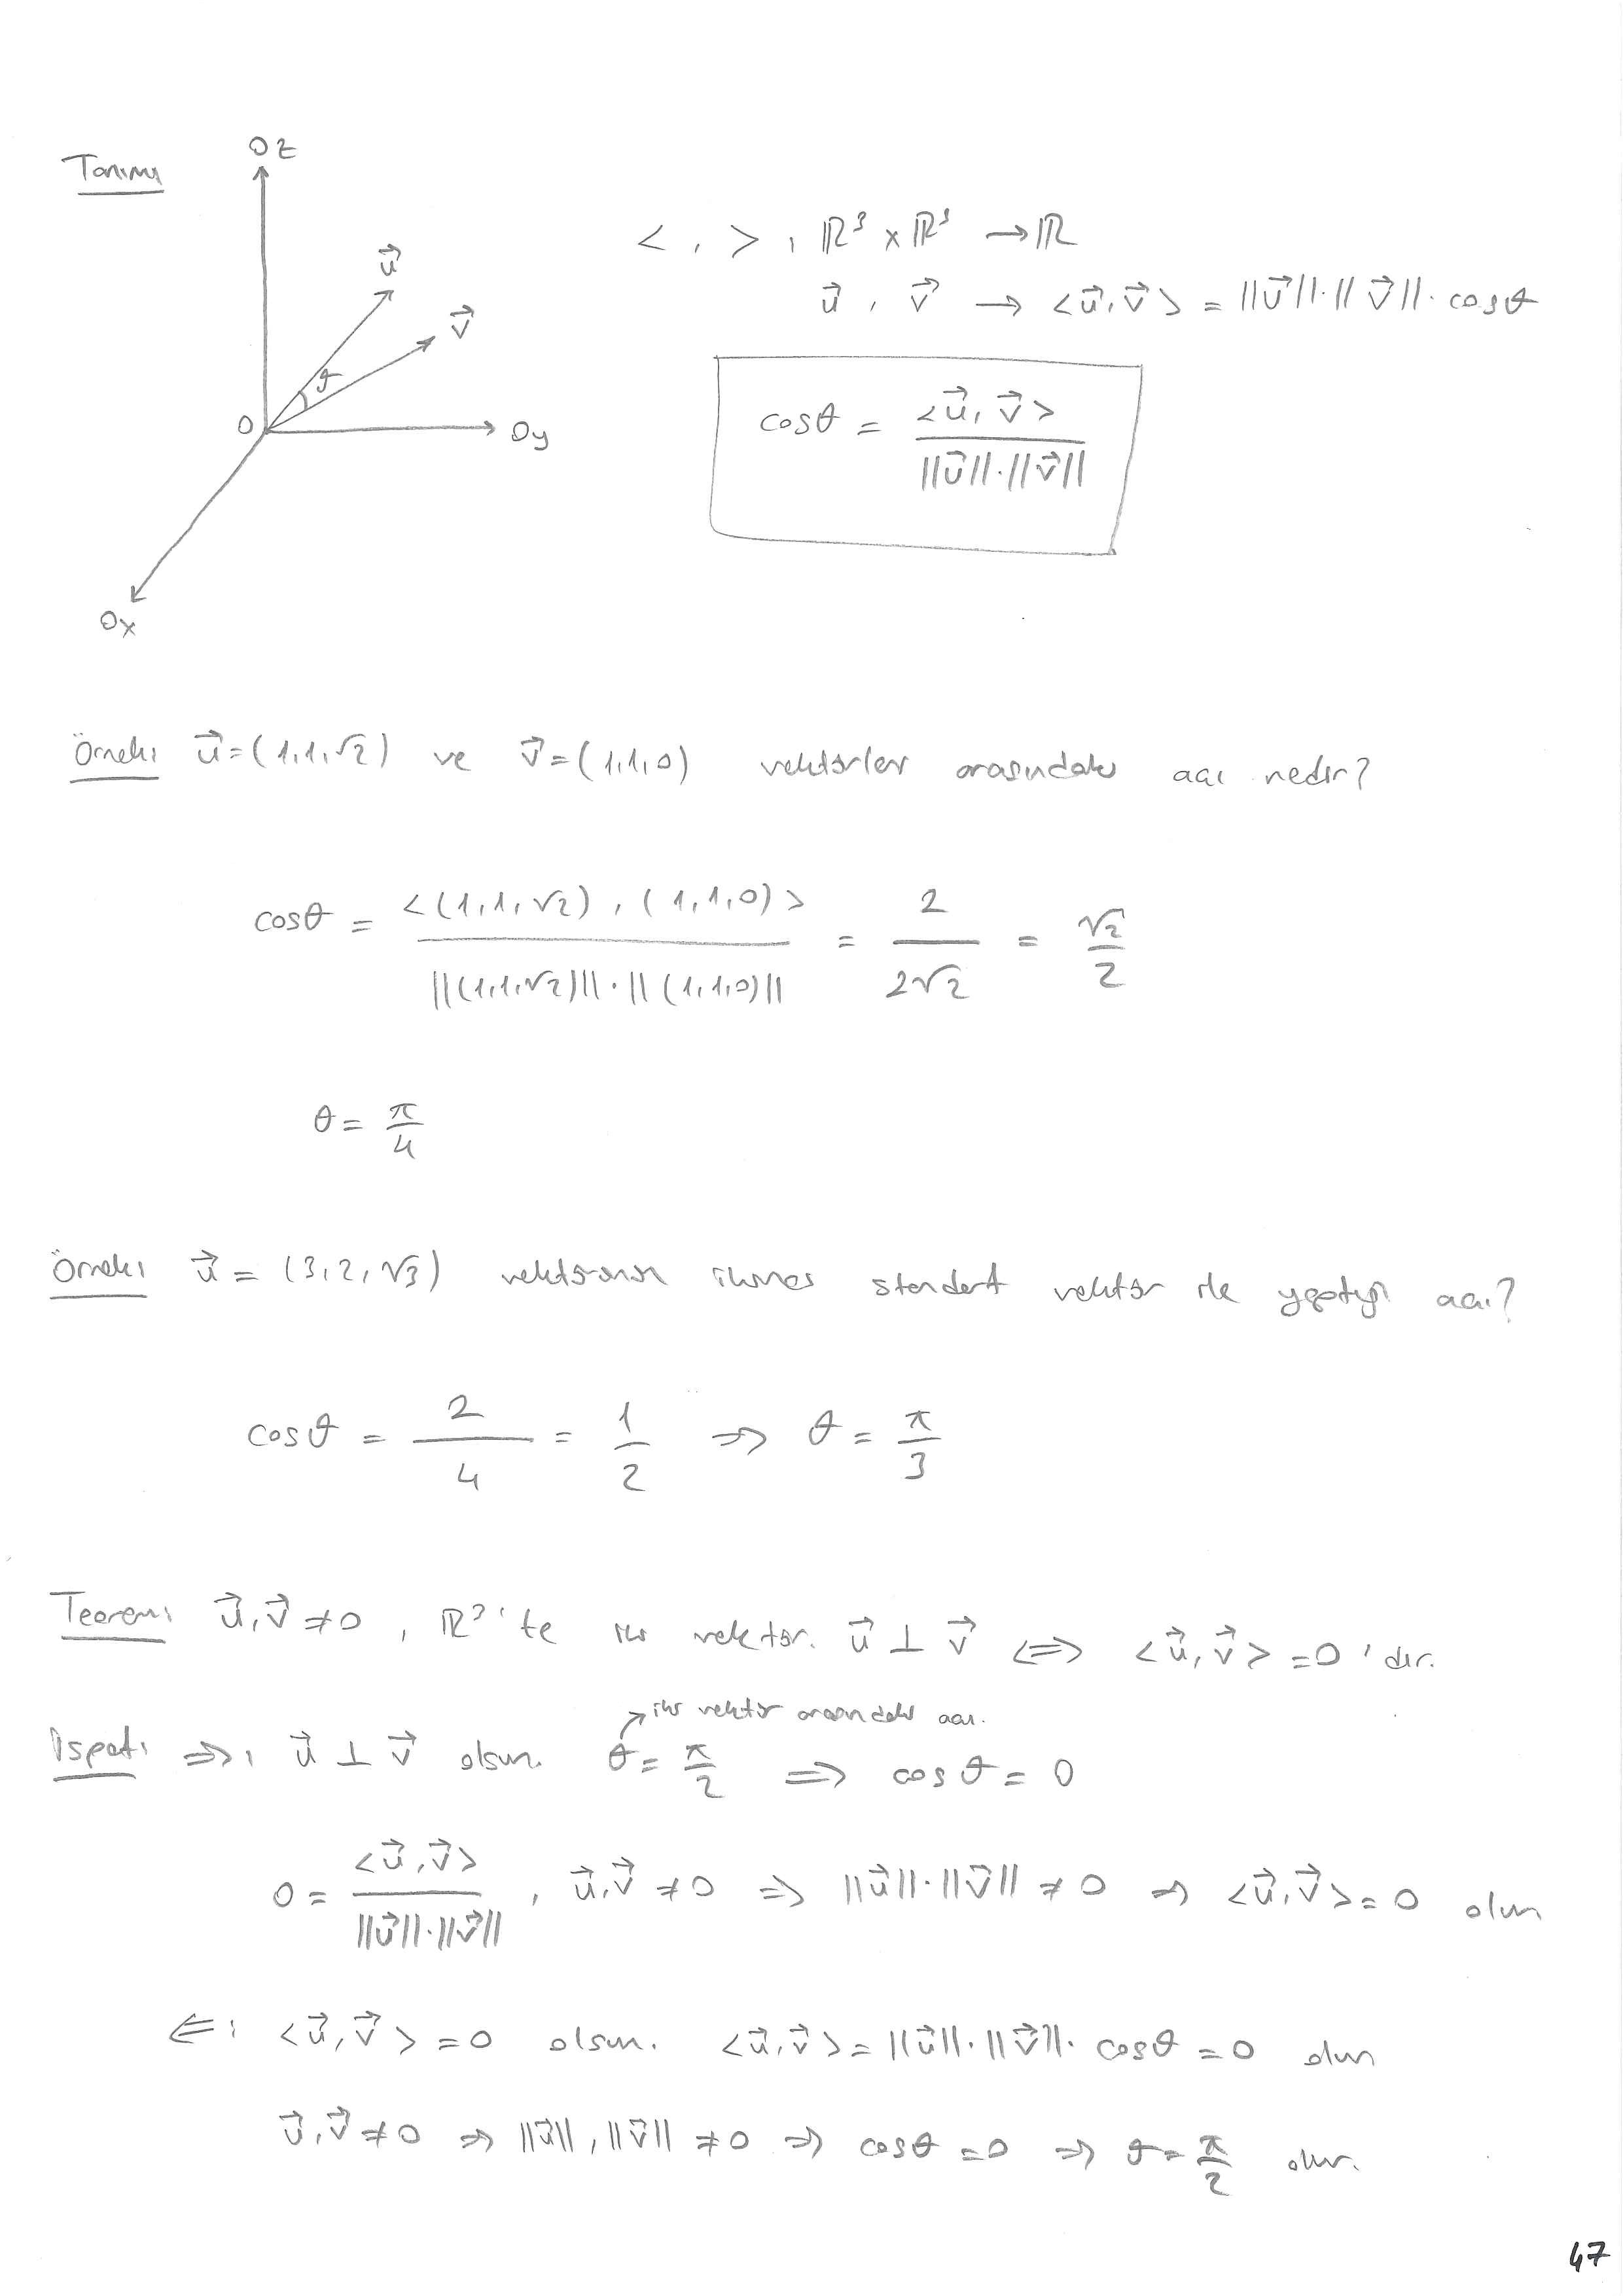 Tanım:
Oz
u⃗
v⃗
θ
O
Oy
Ox
< , > : ℝ³ × ℝ³ → ℝ
u⃗ , v⃗ → <u⃗, v⃗> = ||u⃗||.||v⃗||. cosθ
cosθ = <u⃗, v⃗> / ||u⃗||.||v⃗||
Örnek: u⃗ = (1,1,√2) ve v⃗ = (1,1,0) vektörler arasındaki açı nedir?
cosθ = <(1,1,√2), (1,1,0)> / ||(1,1,√2)||.||(1,1,0)|| = 2 / 2√2 = √2 / 2
θ = π / 4
Örnek: u⃗ = (3,2,√3) vektörünün ikinci standart vektör ile yaptığı açı?
cosθ = 2 / 4 = 1 / 2 ⇒ θ = π / 3
Teorem: u⃗, v⃗ ≠ 0 , ℝ³'te iki vektör. u⃗ ⊥ v⃗ ⟺ <u⃗, v⃗> = 0 'dır.
↗ iki vektör arasındaki açı.
İspat: ⇒: u⃗ ⊥ v⃗ olsun. θ = π / 2 ⇒ cosθ = 0
0 = <u⃗, v⃗> / ||u⃗||.||v⃗|| , u⃗, v⃗ ≠ 0 ⇒ ||u⃗||.||v⃗|| ≠ 0 ⇒ <u⃗, v⃗> = 0 olur
⇐: <u⃗, v⃗> = 0 olsun. <u⃗, v⃗> = ||u⃗||.||v⃗||. cosθ = 0 olur
u⃗, v⃗ ≠ 0 ⇒ ||u⃗||, ||v⃗|| ≠ 0 ⇒ cosθ = 0 ⇒ θ = π / 2 olur.
47